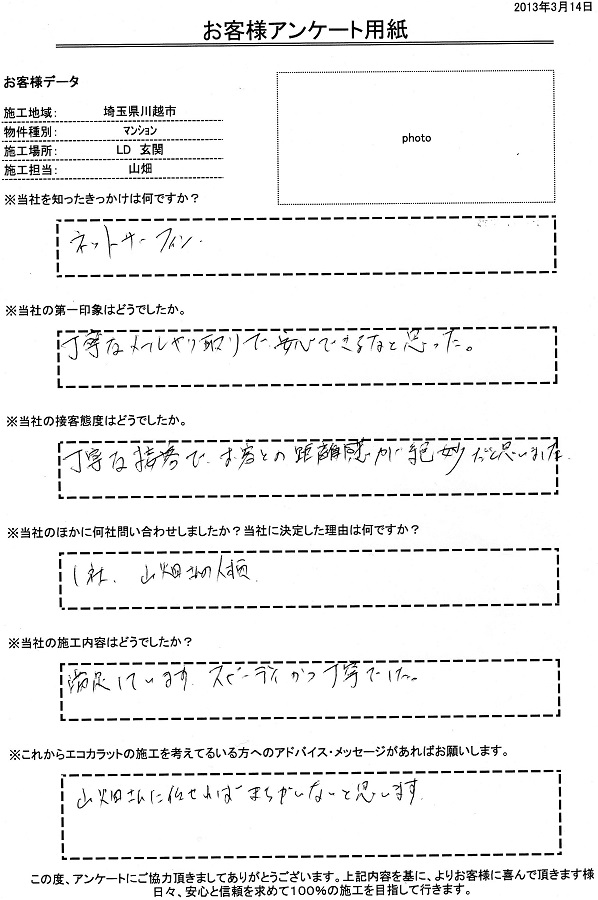 2013年3月14日
お客様アンケート用紙
お客様データ
施工地域： 埼玉県川越市
物件種別： マンション
施工場所： LD 玄関
施工担当： 山畑
photo
※当社を知ったきっかけは何ですか？
ネットサーフィン.
※当社の第一印象はどうでしたか。
丁寧なメールやり取りで、安心できるなと思った。
※当社の接客態度はどうでしたか。
丁寧な接客で、お客との距離感が絶妙だと思いました.
※当社のほかに何社問い合わせしましたか？当社に決定した理由は何ですか？
1社、山畑さんの人柄.
※当社の施工内容はどうでしたか？
満足しています. スピーディかつ丁寧でした。
※これからエコカラットの施工を考えてるいる方へのアドバイス・メッセージがあればお願いします。
山畑さんに任せればまちがいないと思います.
この度、アンケートにご協力頂きましてありがとうございます。上記内容を基に、よりお客様に喜んで頂きます様
日々、安心と信頼を求めて100％の施工を目指して行きます。